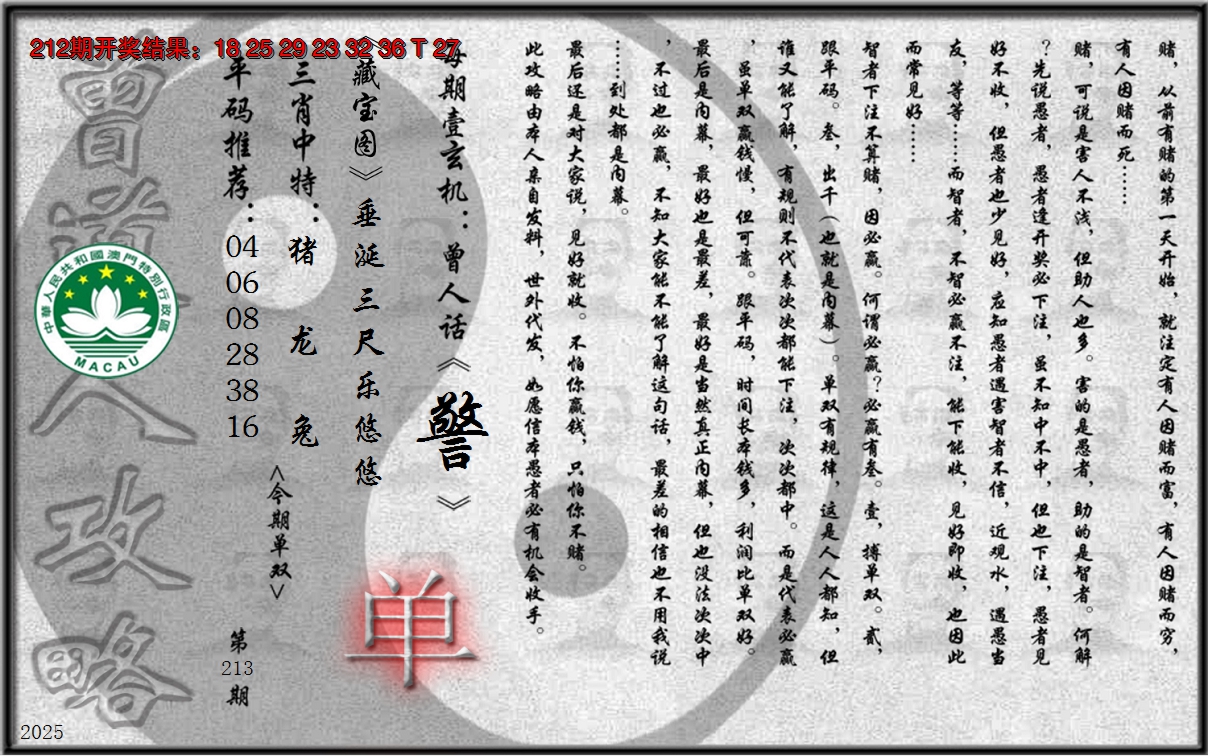 212期开奖结果：18 25 29 23 32 36 T 27
赌，从前有赌的第一天开始，就注定有人因赌而富，有人因赌而穷，
有人因赌而死……
赌，可说是害人不浅，但助人也多。害的是愚者，助的是智者。何解
？先说愚者，愚者逢开奖必下注，虽不知中不中，但也下注，愚者见
好不收，但愚者也少见好，应知愚者遇害智者不信，近观水，遇愚当
友，等等……而智者，不智必赢不注，能下能收，见好即收，也因此
而常见好……
智者下注不算赌，因必赢。何谓必赢？必赢有叁。壹，搏单双。贰，
跟平码。叁，出千（也就是内幕）。单双有规律，这是人人都知，但
谁又能了解，有规则不代表次次都能下注，次次都中。而是代表必赢
，虽单双赢钱慢，但可靠。跟平码，时间长本钱多，利润比单双好。
最后是内幕，最好也是最差，最好是当然真正内幕，但也没法次次中
，不过也必赢，不知大家能不能了解这句话，最差的相信也不用我说
……到处都是内幕。
最后还是对大家说，见好就收。不怕你赢钱，只怕你不赌。
此攻略由本人亲自发料，世外代发，如愿信本愚者必有机会收手。
每期壹玄机：曾人话《警》
《藏宝图》垂涎三尺乐悠悠
单
三肖中特：猪 龙 兔
<今期单双>
平码推荐：04 06 08 28 38 16
第213期
曾道人攻略
中華人民共和國澳門特別行政區
MACAU
2025